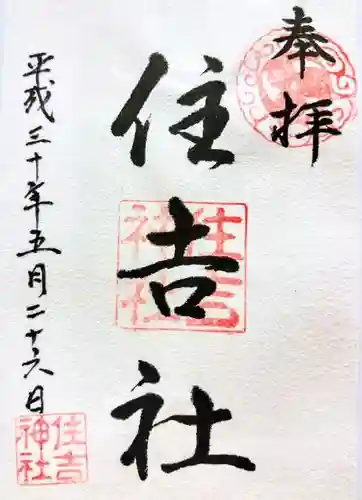 奉拝
住吉社
住吉神社
平成三十年五月二十六日
住吉神社